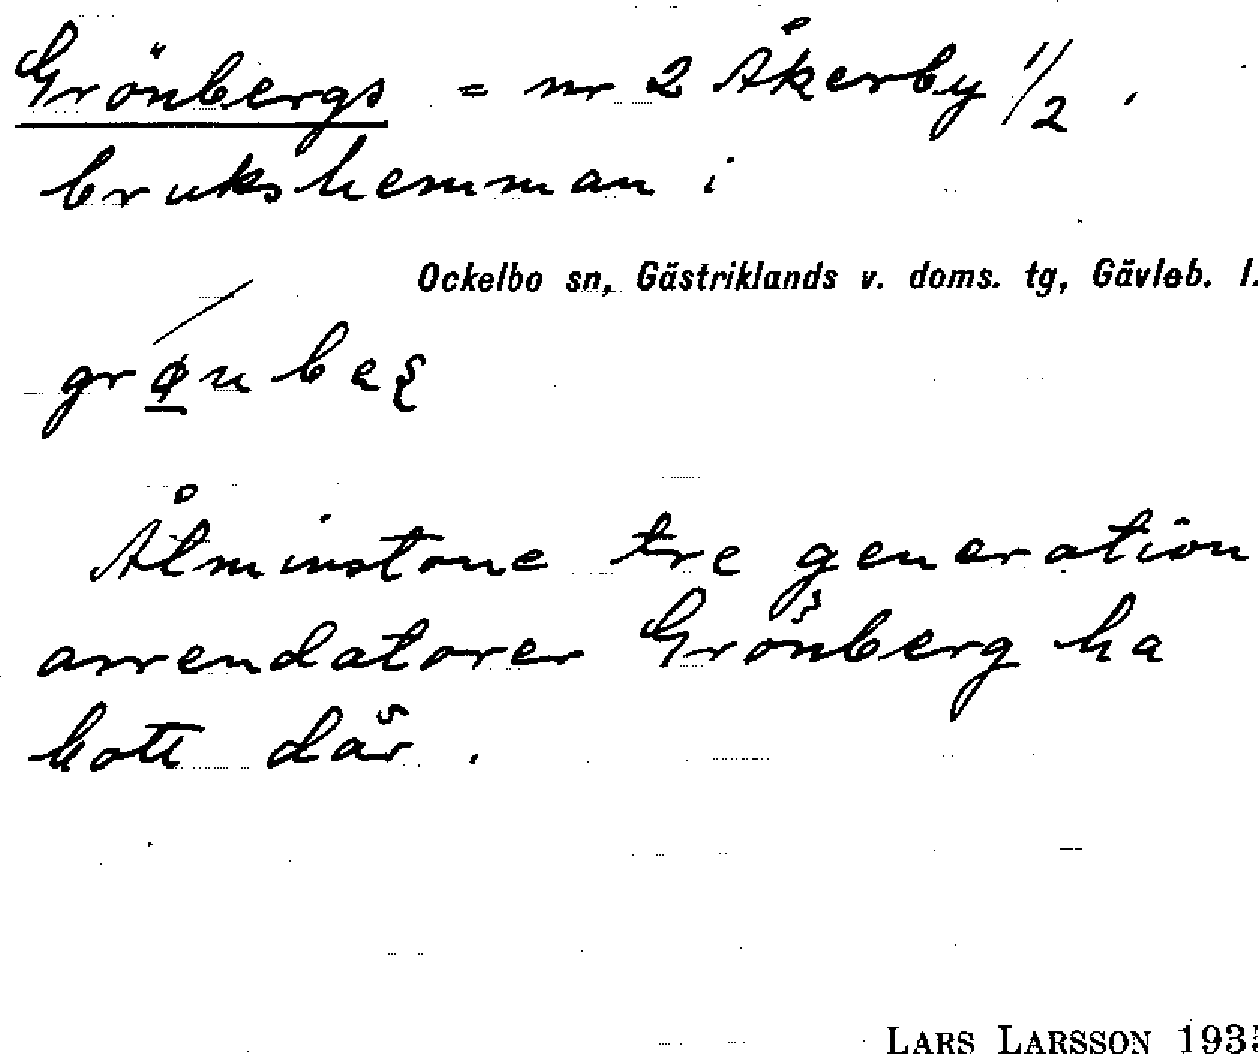 Grönbergs = nr 2 Åkerby 1/2
brukshemman i
Ockelbo sn, Gästriklands v. doms. tg, Gävleb. l.
Åtminstone tre generation
arrendatorer Grönberg ha
bott där.
LARS LARSSON 1935